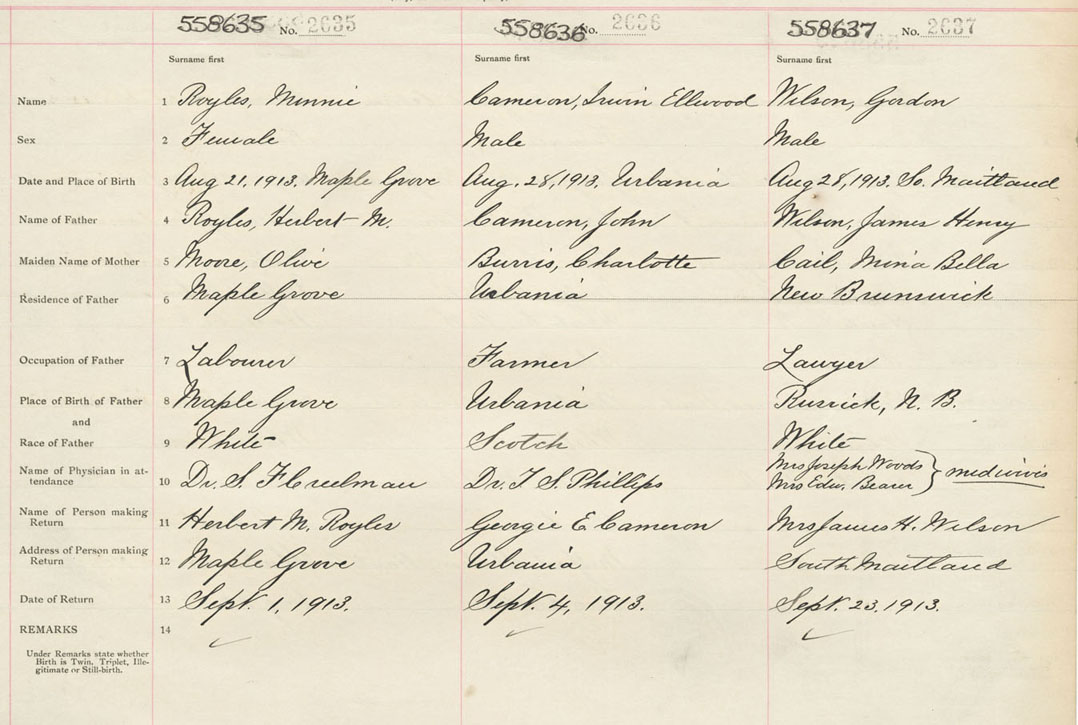 558635 No. 2635 558636 No. 2636 558637 No. 2637
Surname first Surname first Surname first
Name 1 Royles, Minnie Cameron, Irwin Ellwood Wilson, Gordon
Sex 2 Female Male Male
Date and Place of Birth 3 Aug 21, 1913. Maple Grove Aug. 28, 1913. Urbania Aug 28, 1913. So. Maitland
Name of Father 4 Royles, Herbert M. Cameron, John Wilson, James Henry
Maiden Name of Mother 5 Moore, Olive Burris, Charlotte Cail, Mina Bella
Residence of Father 6 Maple Grove Urbania New Brunswick
Occupation of Father 7 Labourer Farmer Lawyer
Place of Birth of Father 8 Maple Grove Urbania N. B.
and
Race of Father 9 White Scotch White
Name of Physician in at-
tendance 10 Dr. S. F Creelman Dr. T S. Phillips Mrs Joseph Woods
Mrs Edw. } midwives
Name of Person making
Return 11 Herbert M. Royles Georgie E Cameron Mrs James H. Wilson
Address of Person making
Return 12 Maple Grove Urbania South Maitland
Date of Return 13 Sept. 1, 1913. Sept. 4, 1913. Sept. 23. 1913.
REMARKS 14
Under Remarks state whether
Birth is Twin, Triplet, Ille-
gitimate or Still-birth.